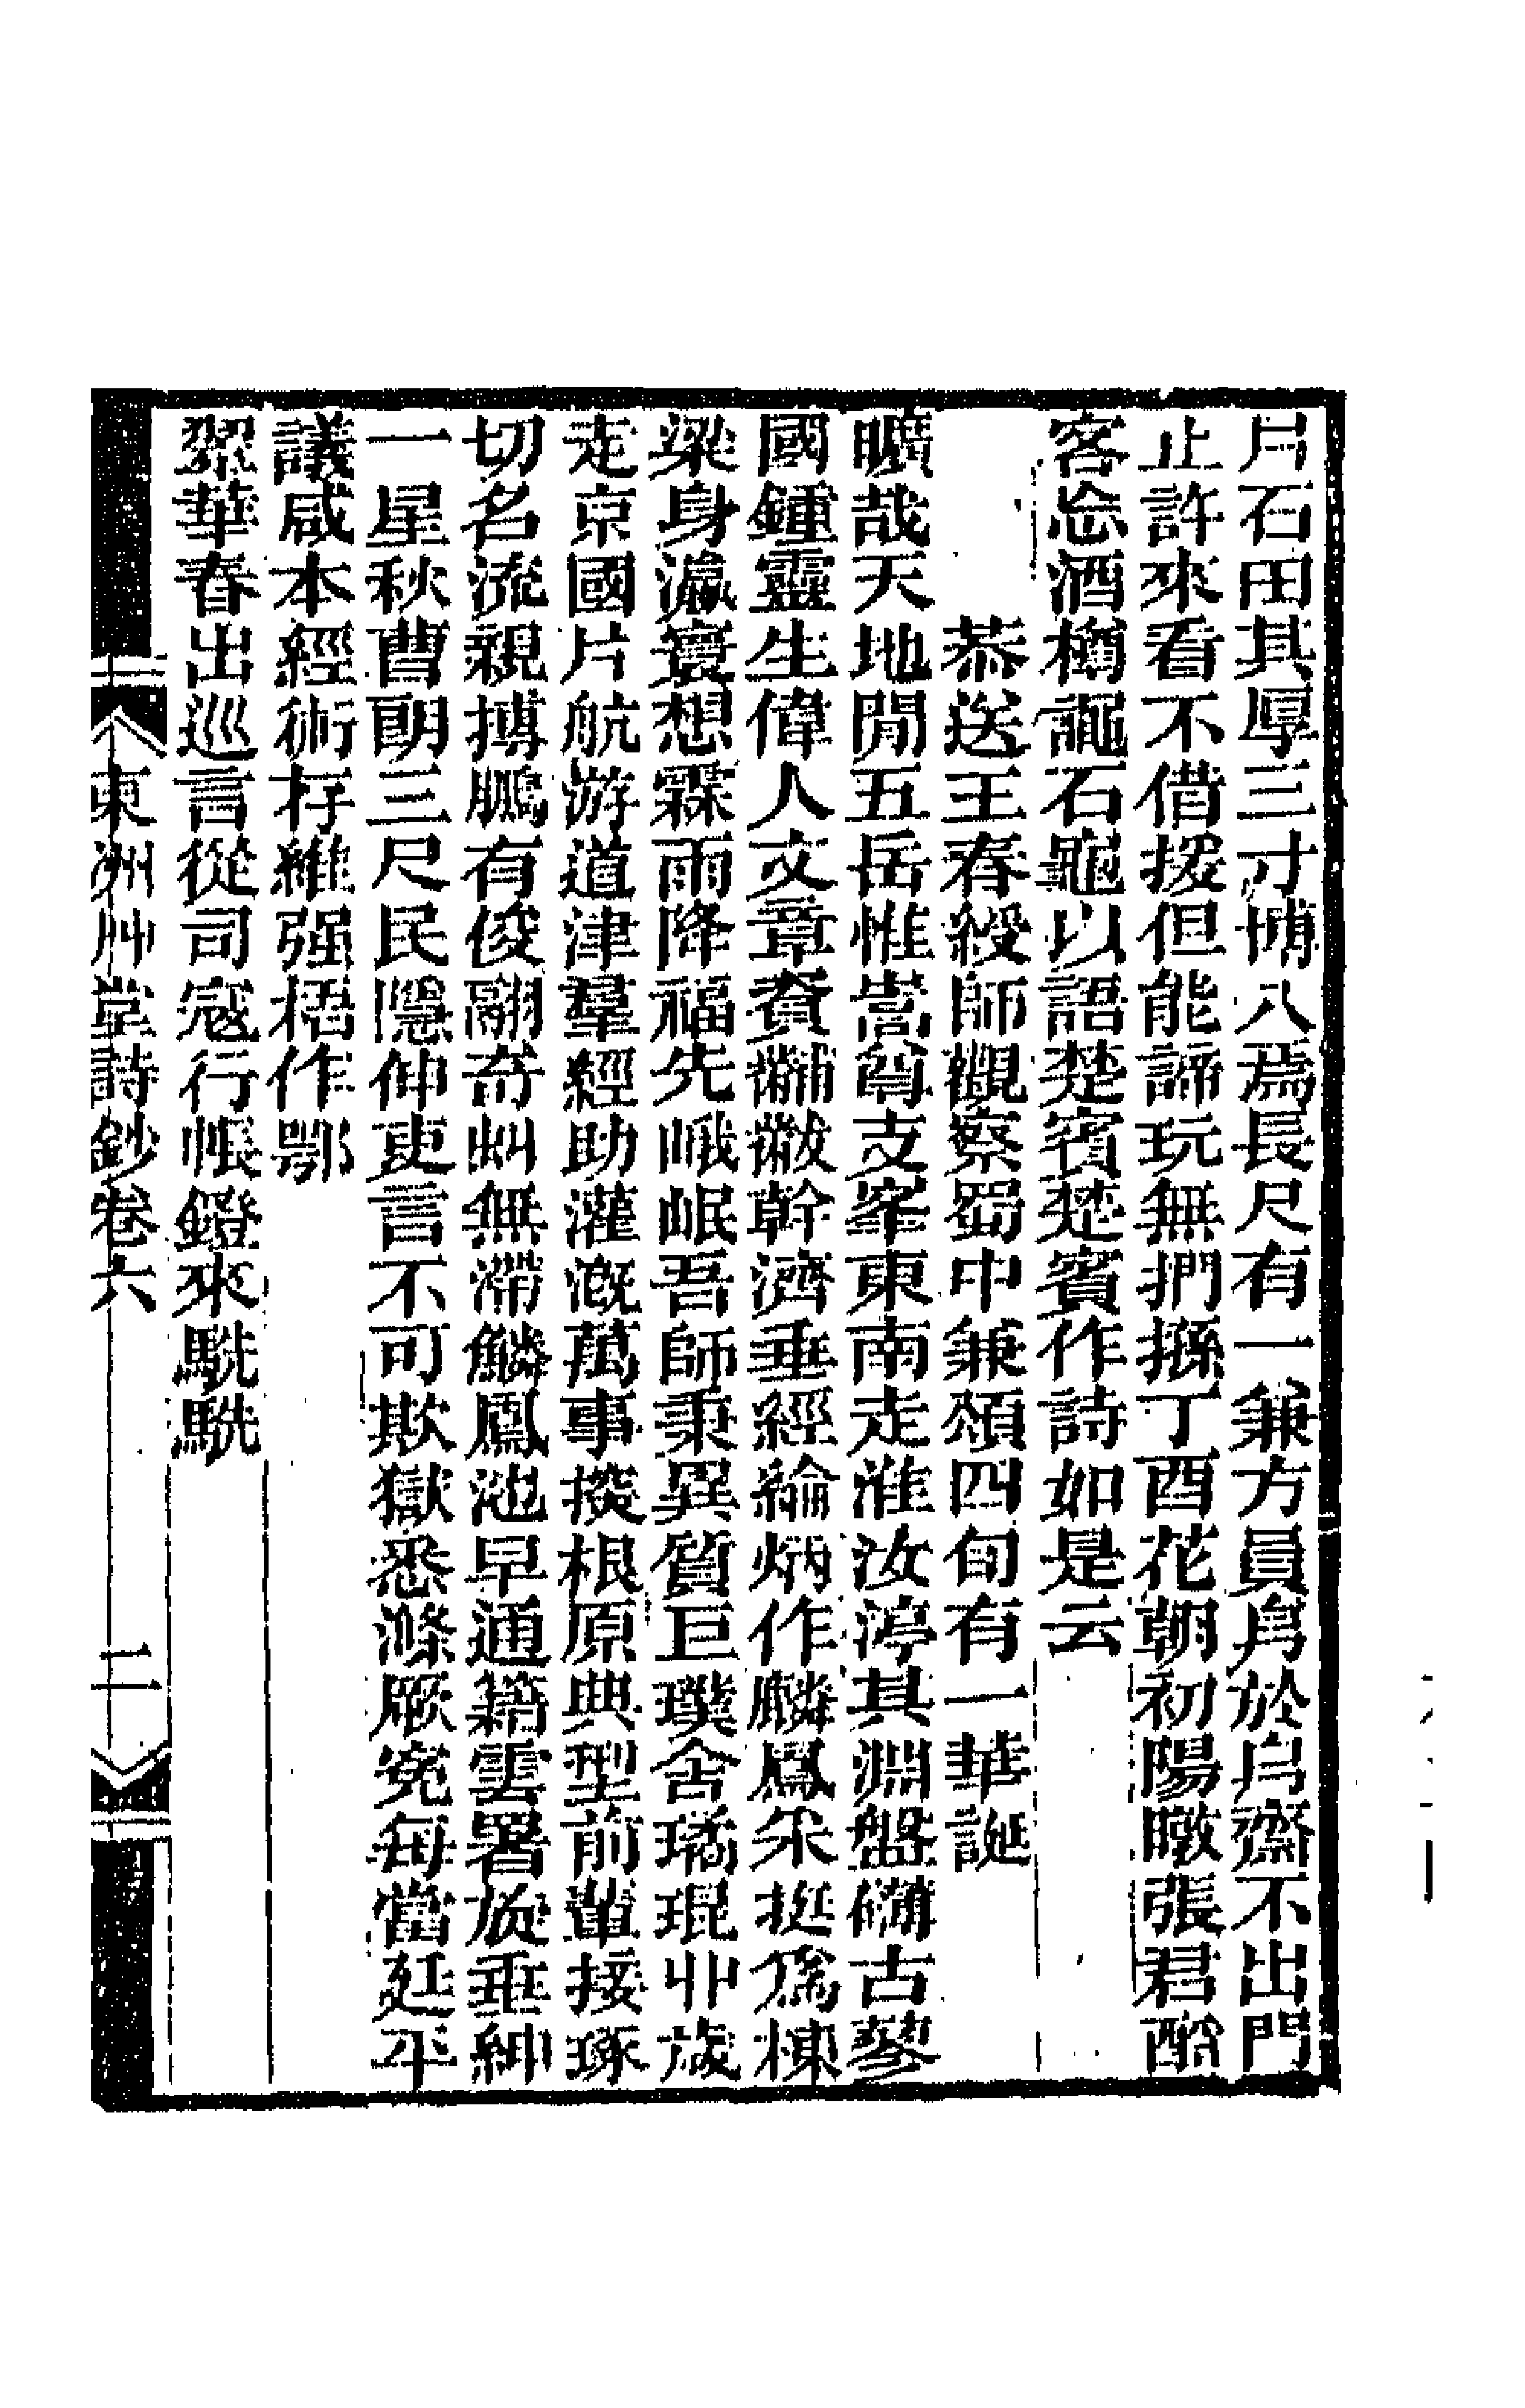 片石田其厚三寸博八焉長尺有一兼方員爲於爲齋不出門
止許來看不借拔但能諦玩無捫搎丁酉花朝初陽暾張君酩
客忩酒樽謳石龜以語楚賓楚賓作詩如是云
恭送王春綬師觀察蜀中兼頌四旬有一華誕
曠哉天地閒五岳惟嵩尊支峯東南走淮汝渟其淵盤礴古蓼
國鍾靈生偉人文章賁黼黻幹濟垂經綸炳作麟鳳采挺爲棟
梁身瀛寰想霖雨降福先峨岷吾師秉異質巨璞含璚琨丱歲
走京國片航游道津羣經助灌溉萬事掞根原典型前輩接琢
切名流親搏鵬有俊翮奇虯無滯鱗鳳池早通籍雲署旋垂紳
一星秋曹朗三尺民隱伸吏言不可欺獄悉滌厥寃每當延平
議咸本經術存維强梧作鄂
翠華春出巡言從司寇行帳鐙來駪駪
東洲艸堂詩鈔卷六
二